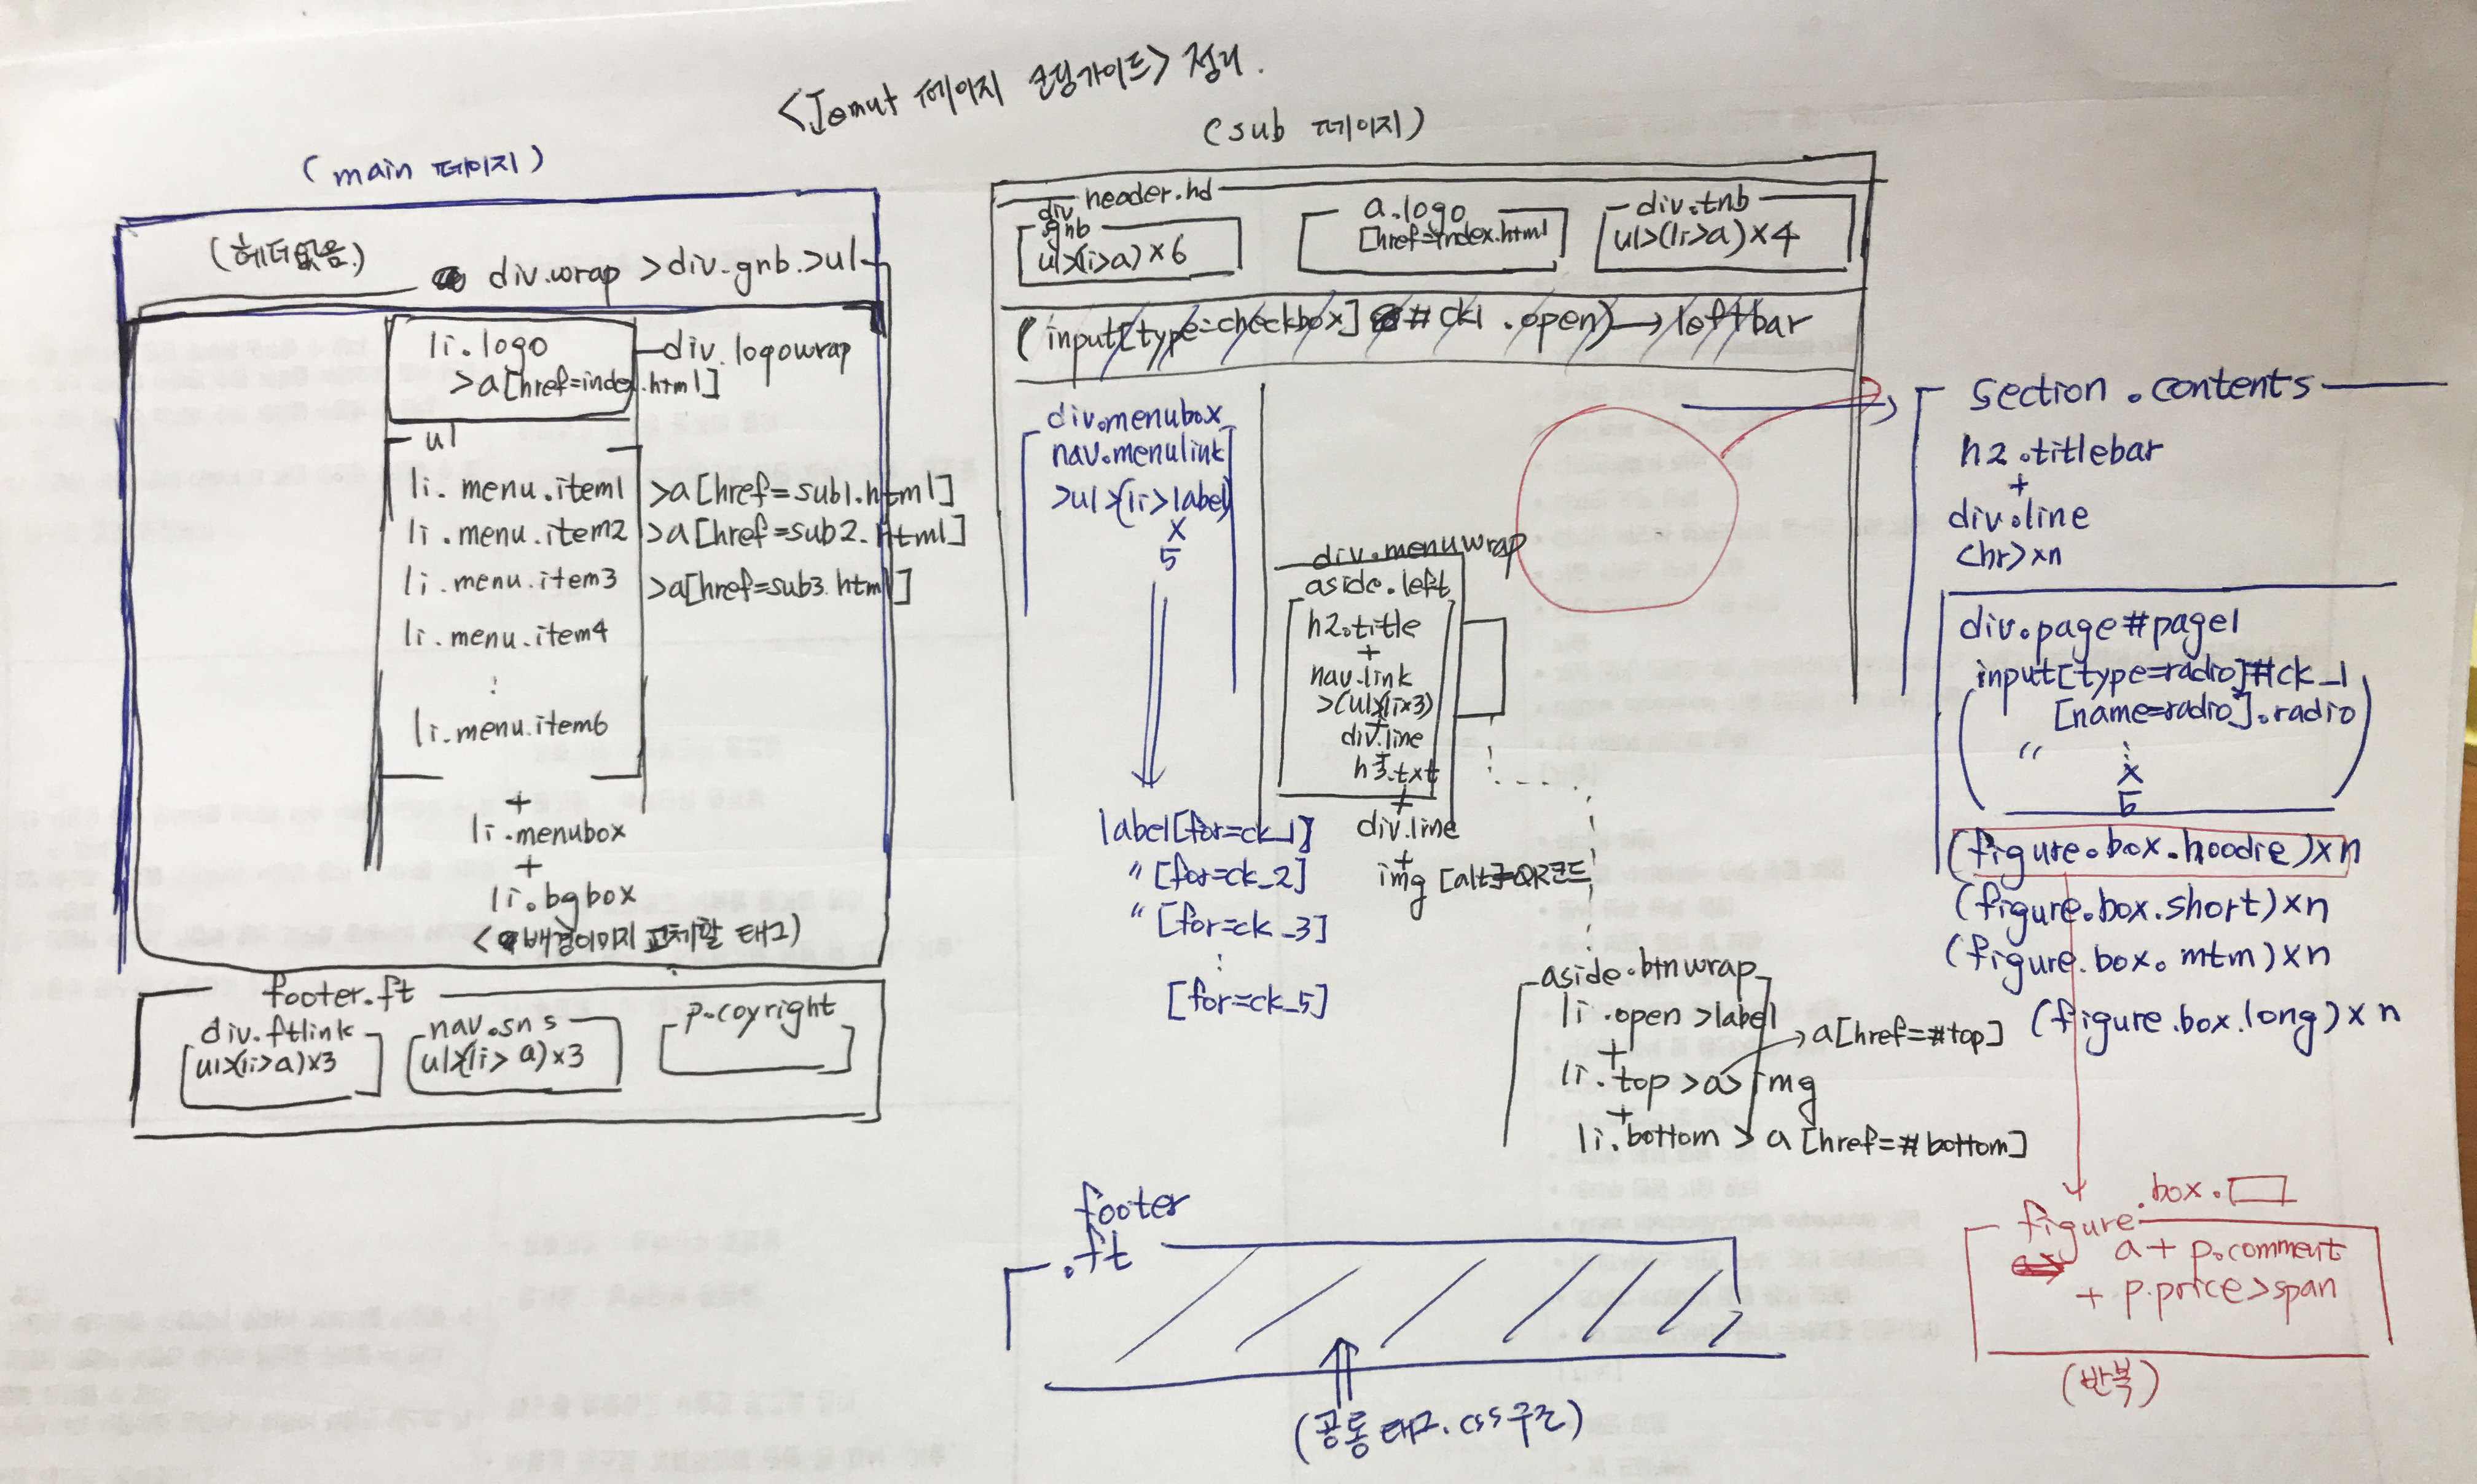 <Jemut 페이지 코딩가이드> 정리.
(main 페이지)
(헤더없음.)
div.wrap >div.gnb.>ul
li.logo
>a[href=index.html]
div.logowrap
ul
li. menu.item1 >a[href=sub1.html]
li. menu.item2 >a[href=sub2.html]
li. menu.item3 >a[href=sub3.html]
li.menu.item4
⋮
li.menu.item6
+
li.menubox
+
li.bgbox
<배경이미지 교체할 태그)
footer.ft
div.ftlink
ul>(li>a)x3
nav.sns
ul>(li>a)x3
p.coyright
(sub 페이지)
header.hd
div.
gnb
ul>(li>a)x6
a.logo
[href=index.html]
div.tnb
ul>(li>a)x4
(input[type=checkbox] #ck1 .open)→leftbar
div.menubox
nav.menulink
>ul>(li>label)
x
5
label[for=ck_1]
" [for=ck_2]
" [for=ck_3]
⋮
[for=ck_5]
div.menuwrap
aside.left
h2.title
+
nav.link
>(ul>(lix3)
+
div.line
+
h3.txt
+
div.line
+
img [alt]=QR코드
aside.btnwrap
li.open>label
+
li.top>a>img
→a[href=#top]
+
li.bottom > a[href=#bottom]
section .contents
h2.titlebar
+
div.line
<hr>xn
div.page#page1
(input[type=radio]#ck_1
[name=radio].radio)
" ⋮
x
5
(figure.box.hoodie)xn
(figure.box.short)xn
(figure.box.mtm)xn
(figure.box.long)xn
figure.box.
a+ p.comment
+ p.price>span
(반복)
footer
.ft
(공통태그.css구조)